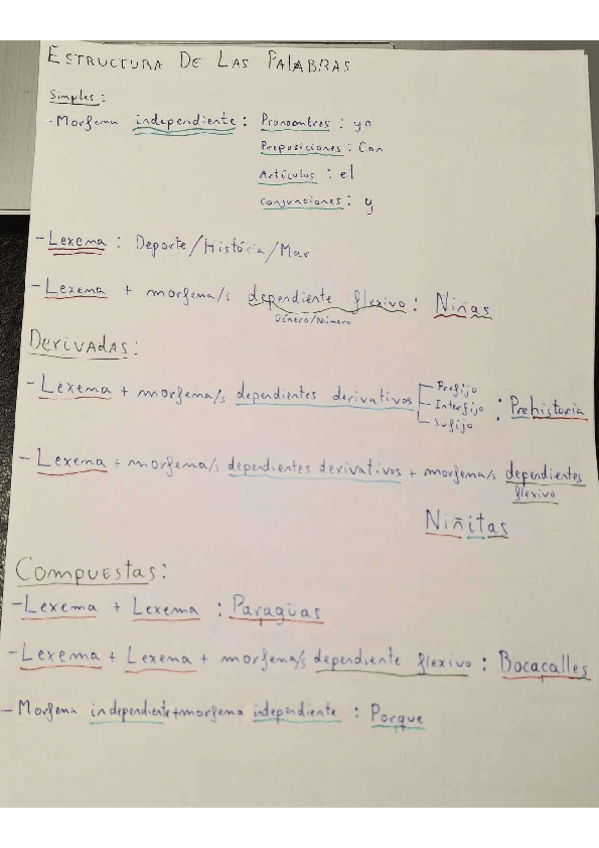 ESTRUCTURA DE LAS PALABRAS
Simples:
- Morfema independiente: Pronombres: yo
Preposiciones: Con
Artículos: el
Conjunciones: y
- Lexema: Deporte/História/Mar
- Lexema + morfema/s dependiente flexivo: Niñas
Género/Número
DERIVADAS:
- Lexema + morfema/s dependientes derivativos Prefijo : Prehistoria
- Interfijo
Sufijo
- Lexema + morfema/s dependientes derivativos + morfema/s dependientes
flexivo
Niñitas
COMPUESTAS:
- Lexema + Lexema : Paragüas
- Lexema + Lexema + morfema/s dependiente flexivo : Bocacalles
- Morfema independiente+morfema independiente : Porque